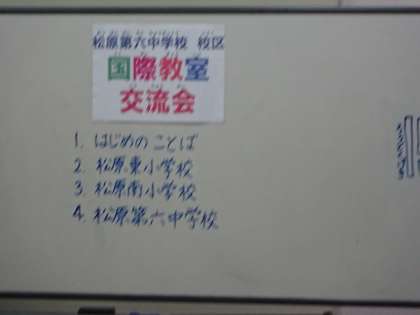 松原第六中学校 校区
国際教室
交流会
1. はじめの ことば
2. 松原東小学校
3. 松原南小学校
4. 松原第六中学校